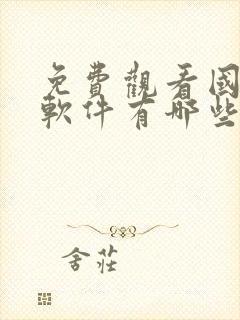 免費觀看國
軟件有哪些
舍莊